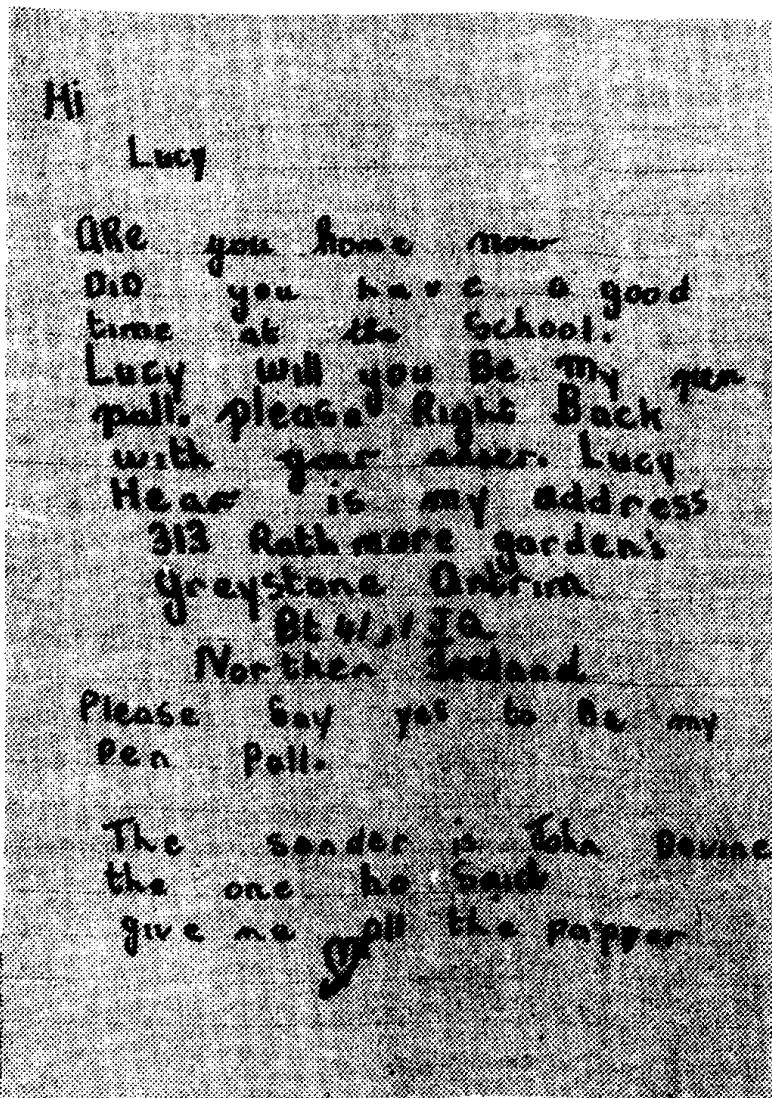 Hi
Lucy
ARe you home now
DiD you have a good
time at the School.
Lucy will you Be my pen
pall. please Right Back
with your
Lucy
Hear is my address
313 Rathmore garden's
Greystone Antrim
Bt 41, 1 JQ
Northen Ireland
Please Say yes to Be my
Pen Pall.
The sender is John Devine
the one ho Said
give me all the papper